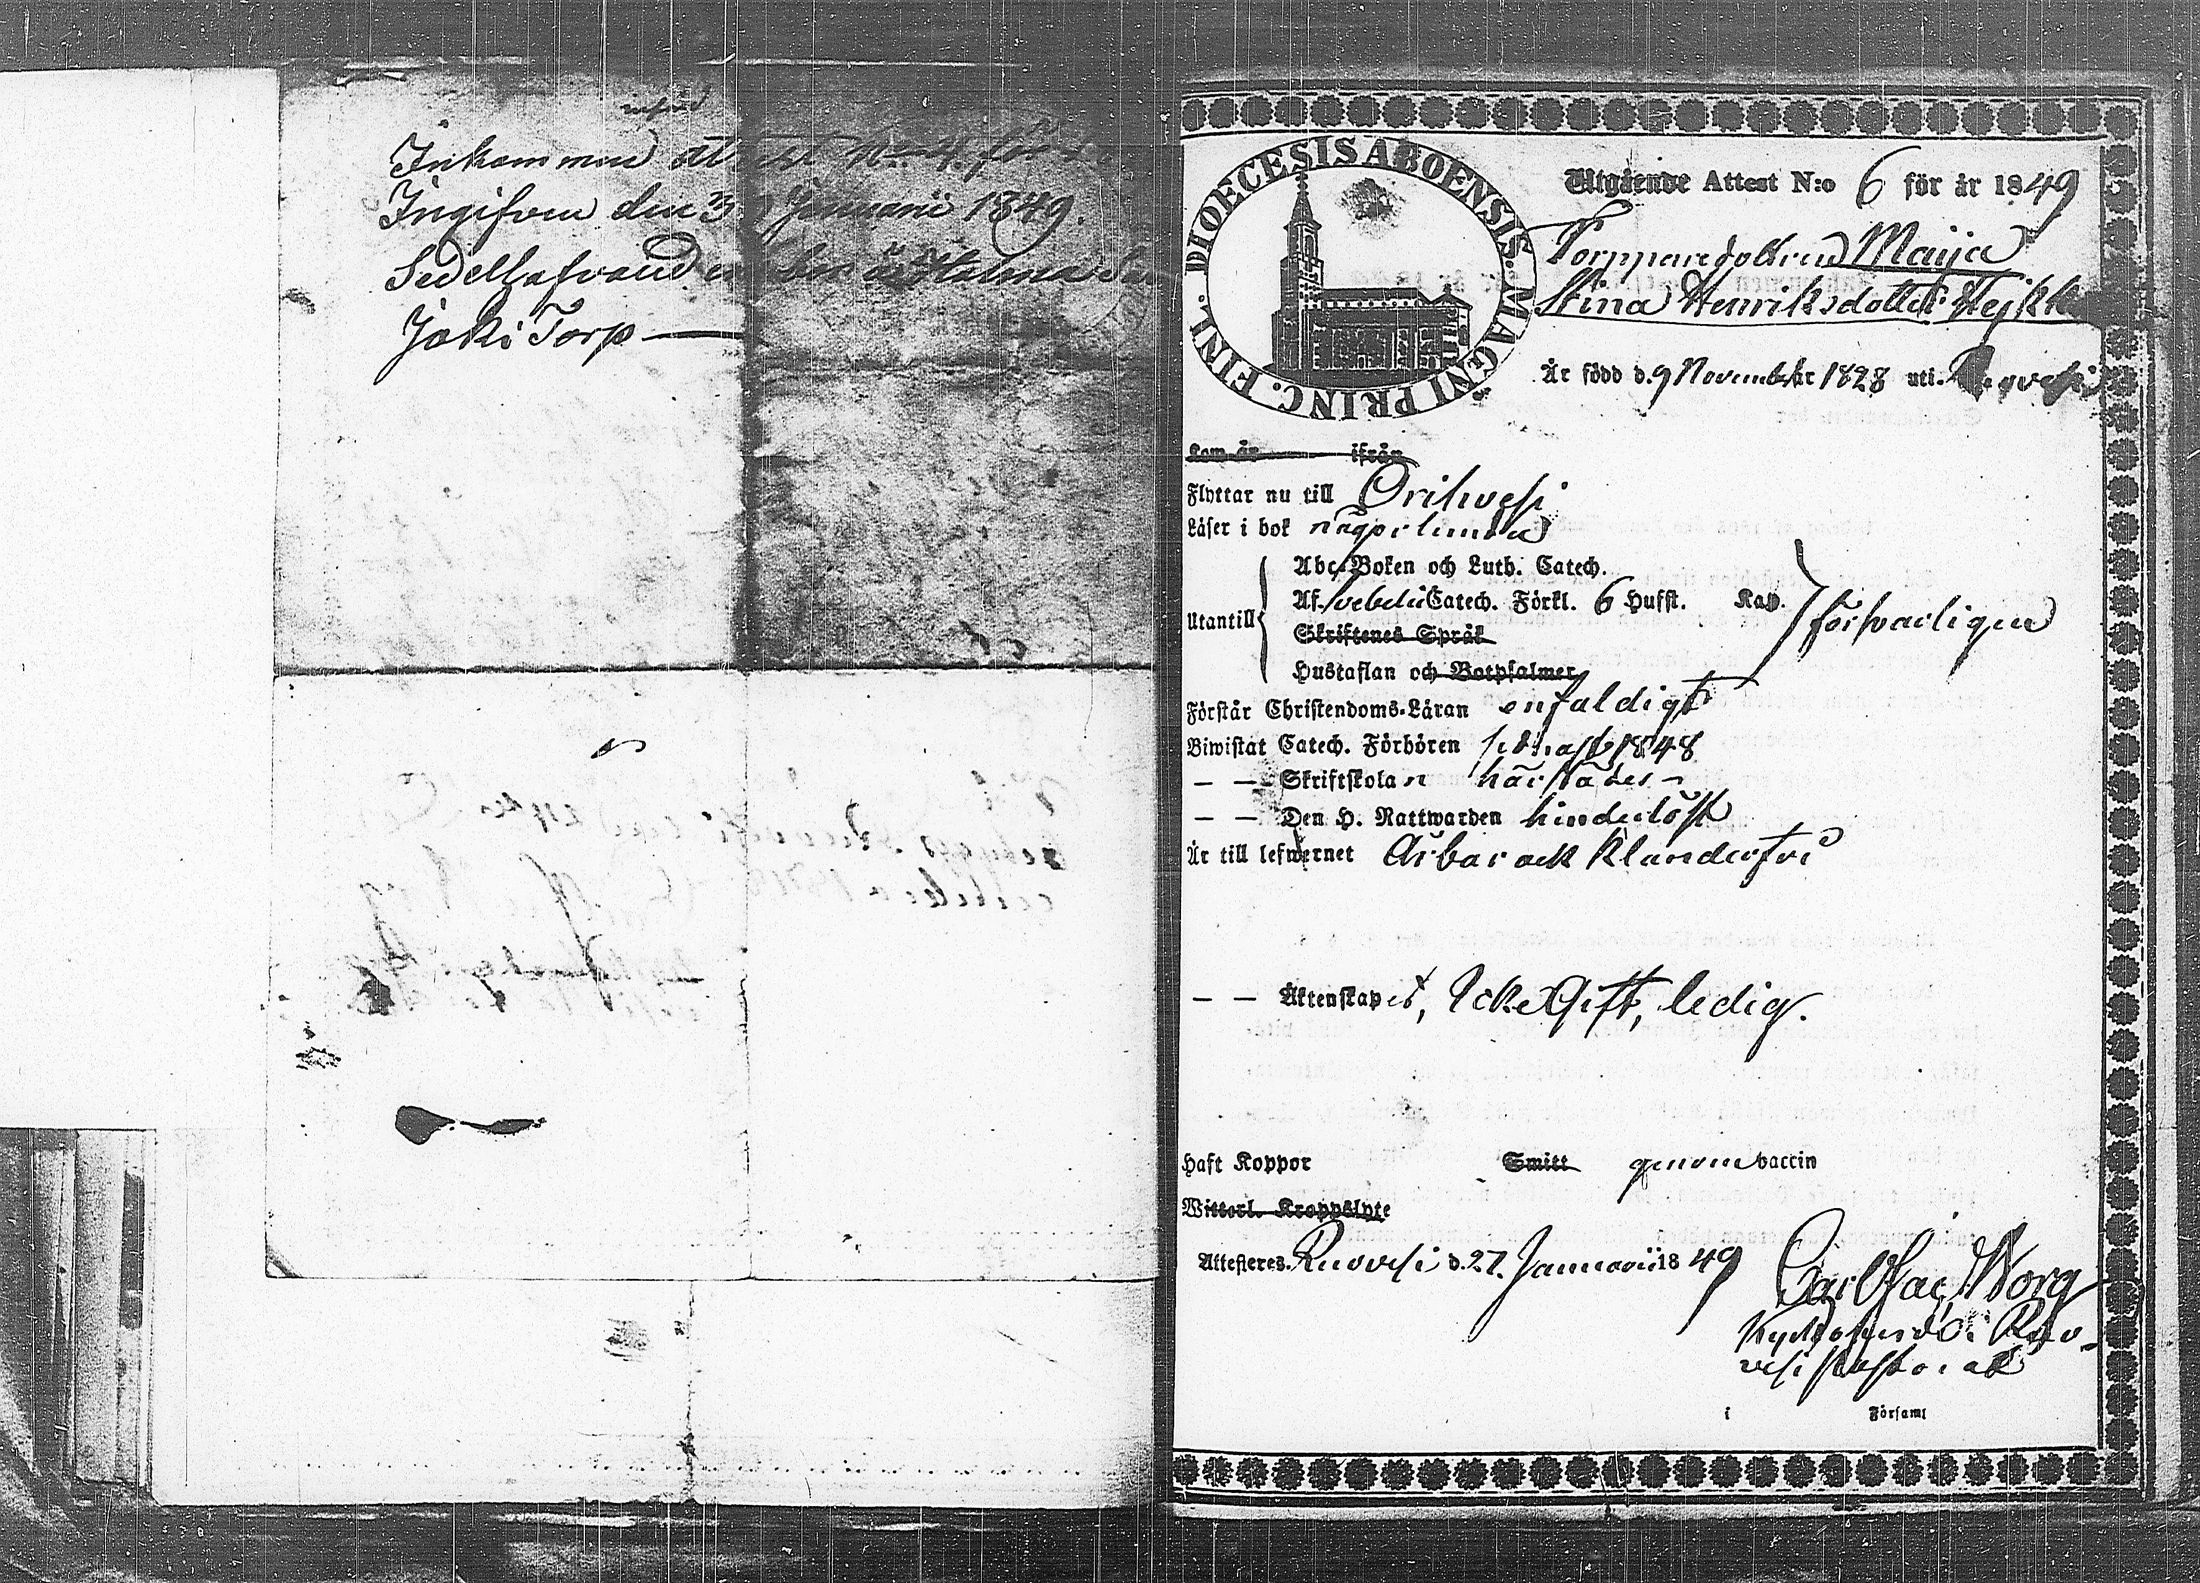 införd
Inkommen attest N:o 4 för
Ingifven den 3 Januarii 1849.
Sedellafvand
Joki Torp
DIOECESIS ABOENSIS. MAGNI PRINC. FINL.
Utgående Attest N:o 6 för år 1849
Torpparedottren Maija
Stina Henriksdotter
Är född d. 9 November 1828 uti. Ruovesi
Kom år ifrån
Flyttar nu till Orihvesi
Läser i bok någorlunda
Abc-Boken och Luth. Catech.
Utantill Af. Svebelii Catech. Förkl. 6 Hufst. Kap. försvarligen
Skriftenes Språk
Hustaflan och Botpsalmer
Förstår Christendoms-Läran enfaldigt
Biwistat Catech. Förhören sednast 1848
— — Skriftskolan härstädes
— — Den H. Nattwarden hinderlöst
Är till lefwernet Ärbar ock Klanderfri
— — Äktenskapet, Icke Gift, ledig.
Haft Koppor Smitt genom vaccin
Witterl. Kroppslyte
Attesteres. Ruovesi d. 27. Januarii 1849
Carl Isac Norg
i Ruo-
vesi Pastorat
i Församl